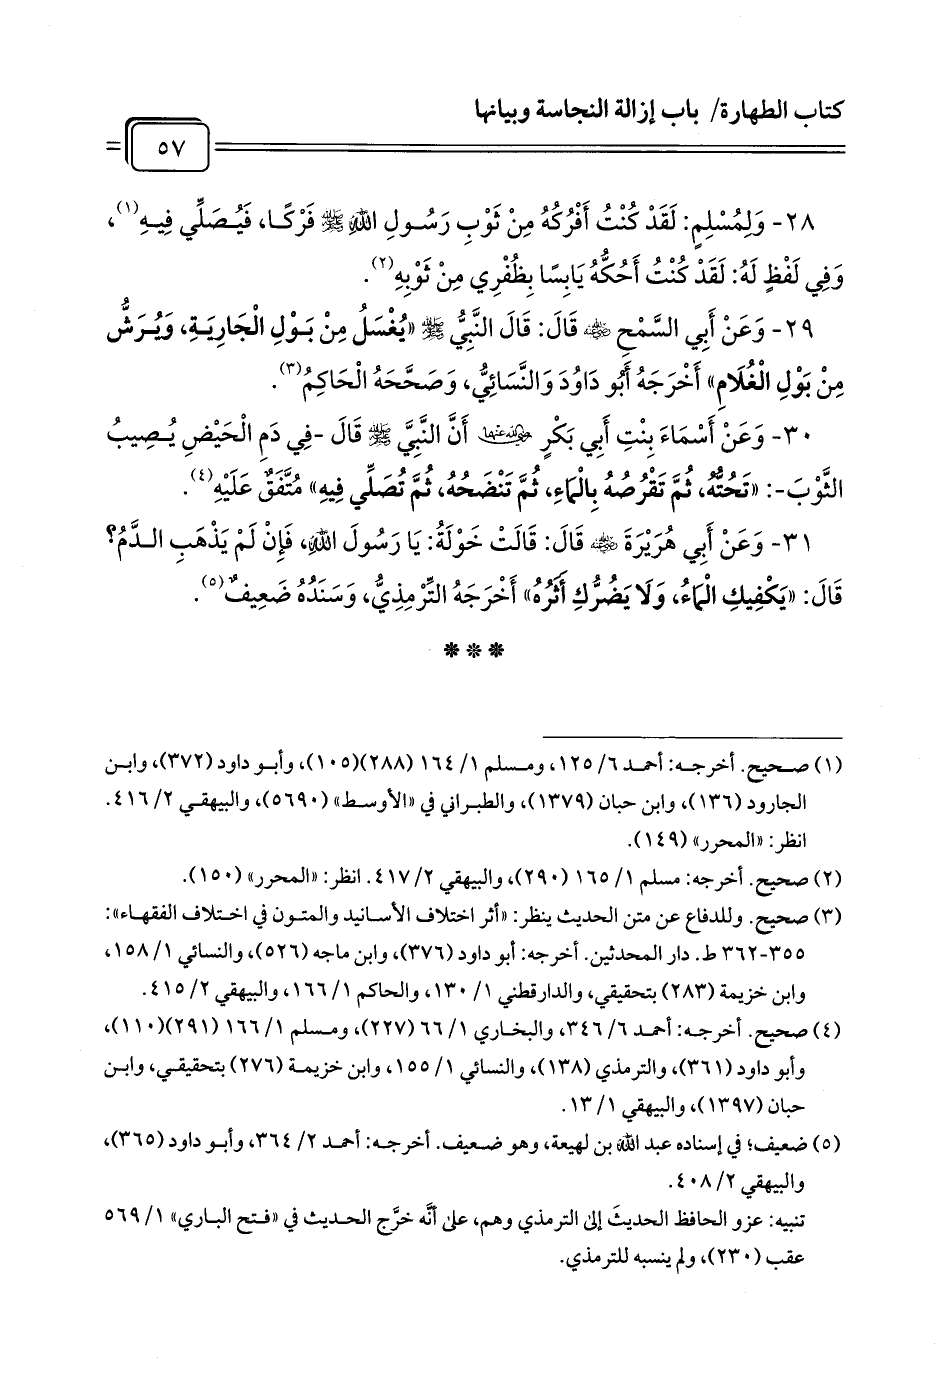 كتاب الطهارة/ باب إزالة النجاسة وبيانها
٥٧
٢٨- وَلِمُسْلِمٍ: لَقَدْ كُنْتُ أَفْرُكُهُ مِنْ ثَوْبِ رَسُولِ اللهِ ﷺ فَرْكًا، فَيُصَلِّي فِيهِ(١)،
وَفِي لَفْظٍ لَهُ: لَقَدْ كُنْتُ أَحُكُّهُ يَابِسًا بِظُفْرِي مِنْ ثَوْبِهِ(٢).
٢٩- وَعَنْ أَبِي السَّمْحِ رضي الله عنه قَالَ: قَالَ النَّبِيُّ ﷺ «يُغْسَلُ مِنْ بَوْلِ الْجَارِيَةِ، وَيُرَشُّ
مِنْ بَوْلِ الْغُلَامِ» أَخْرَجَهُ أَبُو دَاوُدَ وَالنَّسَائِيُّ، وَصَحَّحَهُ الْحَاكِمُ(٣).
٣٠- وَعَنْ أَسْمَاءَ بِنْتِ أَبِي بَكْرٍ رضي الله عنهما أَنَّ النَّبِيَّ ﷺ قَالَ -فِي دَمِ الْحَيْضِ يُصِيبُ
الثَّوْبَ-: «تَحُتُّهُ، ثُمَّ تَقْرُصُهُ بِالْمَاءِ، ثُمَّ تَنْضَحُهُ، ثُمَّ تُصَلِّي فِيهِ» مُتَّفَقٌ عَلَيْهِ(٤).
٣١- وَعَنْ أَبِي هُرَيْرَةَ رضي الله عنه قَالَ: قَالَتْ خَوْلَةُ: يَا رَسُولَ اللهِ، فَإِنْ لَمْ يَذْهَبِ الدَّمُ؟
قَالَ: «يَكْفِيكِ الْمَاءُ، وَلَا يَضُرُّكِ أَثَرُهُ» أَخْرَجَهُ التِّرْمِذِيُّ، وَسَنَدُهُ ضَعِيفٌ(٥).
***
(١) صحيح. أخرجه: أحمد ٦/ ١٢٥، ومسلم ١/ ١٦٤ (٢٨٨)(١٠٥)، وأبو داود (٣٧٢)، وابن
الجارود (١٣٦)، وابن حبان (١٣٧٩)، والطبراني في «الأوسط» (٥٦٩٠)، والبيهقي ٢/ ٤١٦.
انظر: «المحرر» (١٤٩).
(٢) صحيح. أخرجه: مسلم ١/ ١٦٥ (٢٩٠)، والبيهقي ٢/ ٤١٧. انظر: «المحرر» (١٥٠).
(٣) صحيح. وللدفاع عن متن الحديث ينظر: «أثر اختلاف الأسانيد والمتون في اختلاف الفقهاء»:
٣٥٥-٣٦٢ ط. دار المحدثين. أخرجه: أبو داود (٣٧٦)، وابن ماجه (٥٢٦)، والنسائي ١/ ١٥٨،
وابن خزيمة (٢٨٣) بتحقيقي، والدارقطني ١/ ١٣٠، والحاكم ١/ ١٦٦، والبيهقي ٢/ ٤١٥.
(٤) صحيح. أخرجه: أحمد ٦/ ٣٤٦، والبخاري ١/ ٦٦ (٢٢٧)، ومسلم ١/ ١٦٦ (٢٩١)(١١٠)،
وأبو داود (٣٦١)، والترمذي (١٣٨)، والنسائي ١/ ١٥٥، وابن خزيمة (٢٧٦) بتحقيقي، وابن
حبان (١٣٩٧)، والبيهقي ١/ ١٣.
(٥) ضعيف؛ في إسناده عبد الله بن لهيعة، وهو ضعيف. أخرجه: أحمد ٢/ ٣٦٤، وأبو داود (٣٦٥)،
والبيهقي ٢/ ٤٠٨.
تنبيه: عزو الحافظ الحديثَ إلى الترمذي وهم، على أنَّه خرَّج الحديث في «فتح الباري» ١/ ٥٦٩
عقب (٢٣٠)، ولم ينسبه للترمذي.